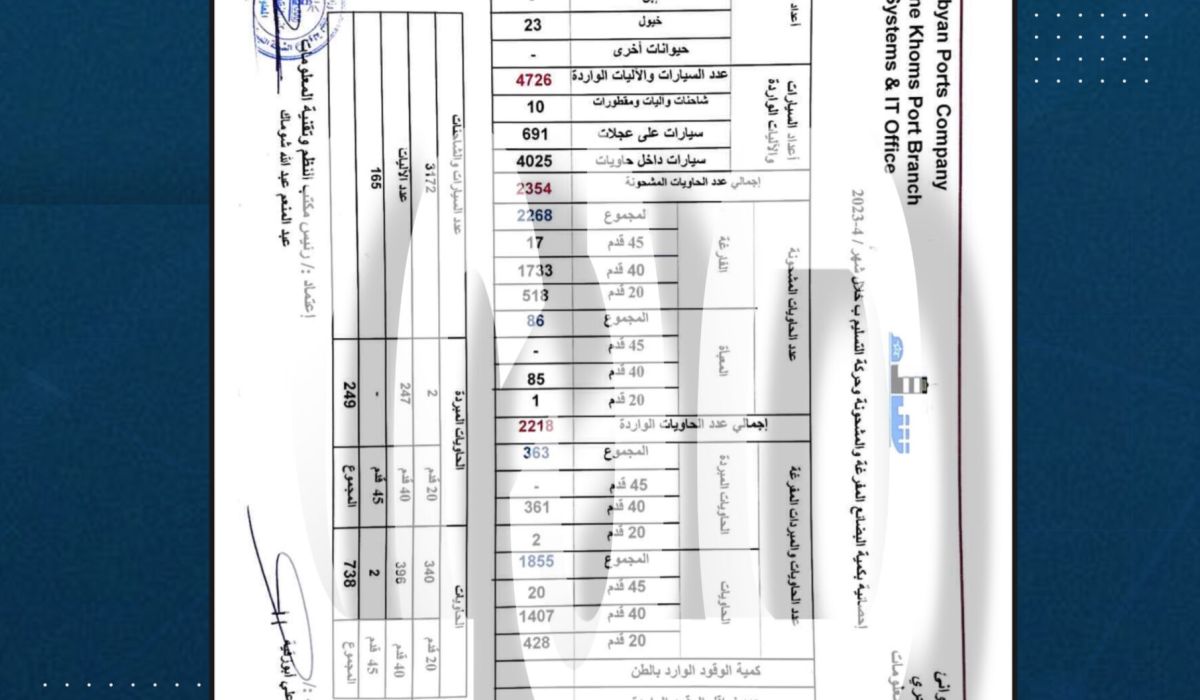 byan Ports Company
ne Khoms Port Branch
Systems & IT Office
إحصائية بكمية البضائع المفرغة والمشحونة وحركة التسليم ب خلال شهر / 4-2023
أعداد
خيول 23
حيوانات أخرى -
أعداد السيارات والآليات الواردة
عدد السيارات والآليات الواردة 4726
شاحنات واليات ومقطورات 10
سيارات على عجلات 691
سيارات داخل حاويات 4025
إجمالي عدد الحاويات المشحونة 2354
عدد الحاويات المشحونة
الفارغة
لمجموع 2268
45 قدم 17
40 قدم 1733
20 قدم 518
المعبأة
المجموع 86
45 قدم -
40 قدم 85
20 قدم 1
إجمالي عدد الحاويات الواردة 2218
عدد الحاويات والمبردات المفرغة
الحاويات المبردة
المجموع 363
45 قدم -
40 قدم 361
20 قدم 2
الحاويات
المجموع 1855
45 قدم 20
40 قدم 1407
20 قدم 428
كمية الوقود الوارد بالطن
عدد السيارات والشاحنات
3172
عدد الآليات
165
الحاويات المبردة
20 قدم 2
40 قدم 247
45 قدم -
المجموع 249
الحاويات
20 قدم 340
40 قدم 396
45 قدم 2
المجموع 738
إعتماد :/ رئيس مكتب النظم وتقنية المعلومات
عبد المنعم عبد الله شوماك